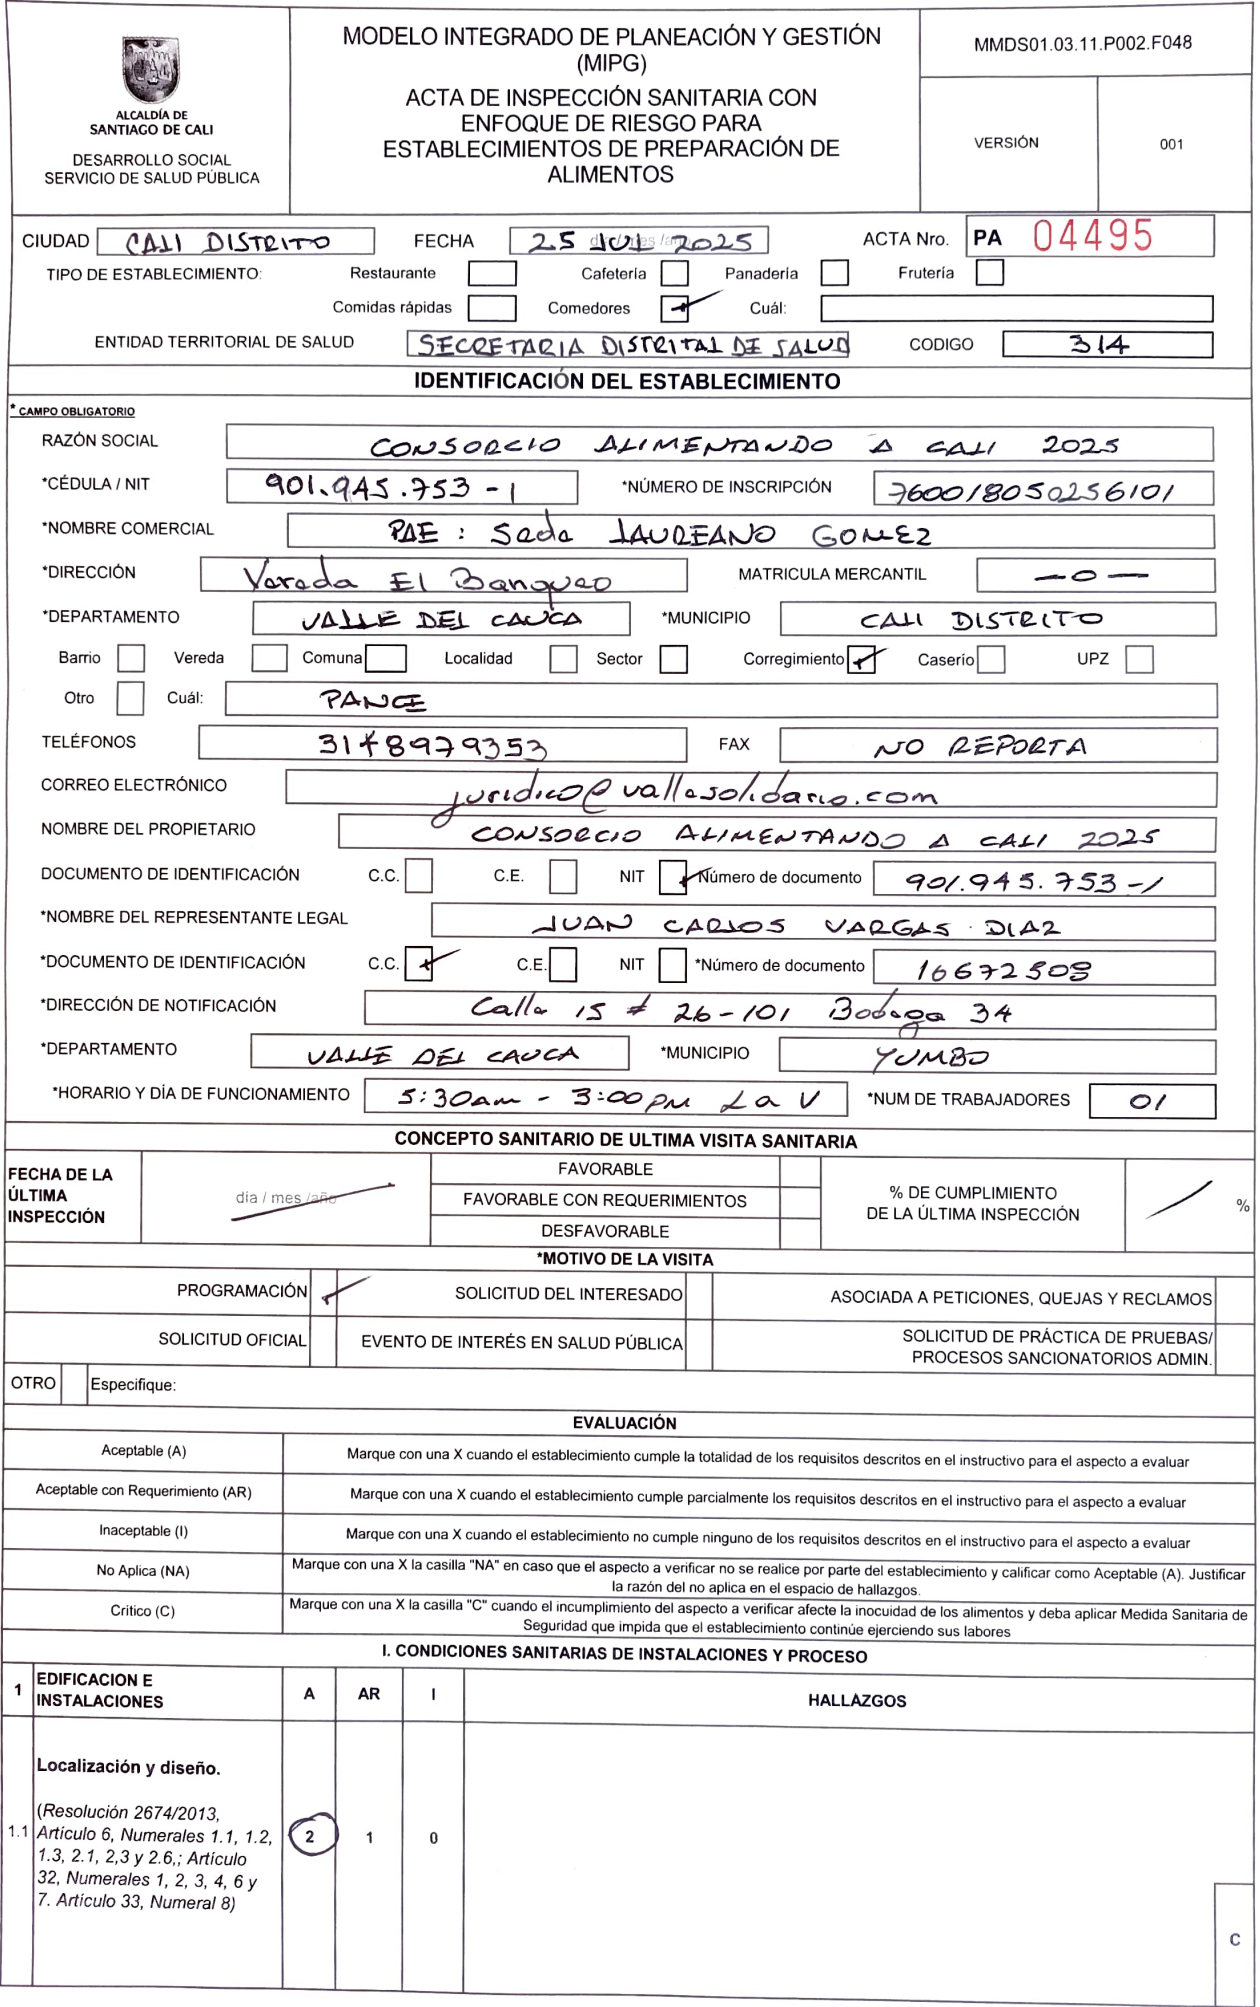 ALCALDÍA DE
SANTIAGO DE CALI
DESARROLLO SOCIAL
SERVICIO DE SALUD PÚBLICA
MODELO INTEGRADO DE PLANEACIÓN Y GESTIÓN
(MIPG)
ACTA DE INSPECCIÓN SANITARIA CON
ENFOQUE DE RIESGO PARA
ESTABLECIMIENTOS DE PREPARACIÓN DE
ALIMENTOS
MMDS01.03.11.P002.F048
VERSIÓN 001
CIUDAD CALI DISTRITO FECHA 25 JUL 2025 ACTA Nro. PA 04495
TIPO DE ESTABLECIMIENTO: Restaurante Cafetería Panadería Frutería
Comidas rápidas Comedores Cuál:
ENTIDAD TERRITORIAL DE SALUD SECRETARIA DISTRITAL DE SALUD CODIGO 314
IDENTIFICACIÓN DEL ESTABLECIMIENTO
* CAMPO OBLIGATORIO
RAZÓN SOCIAL CONSORCIO ALIMENTANDO A CALI 2025
*CÉDULA / NIT 901.945.753-1 *NÚMERO DE INSCRIPCIÓN 760018050256101
*NOMBRE COMERCIAL PAE: Sede LAUREANO GOMEZ
*DIRECCIÓN Vereda El Banqueo MATRICULA MERCANTIL —0—
*DEPARTAMENTO VALLE DEL CAUCA *MUNICIPIO CALI DISTRITO
Barrio Vereda Comuna Localidad Sector Corregimiento Caserío UPZ
Otro Cuál: PANCE
TELÉFONOS 3148979353 FAX NO REPORTA
CORREO ELECTRÓNICO juridico@vallesolidario.com
NOMBRE DEL PROPIETARIO CONSORCIO ALIMENTANDO A CALI 2025
DOCUMENTO DE IDENTIFICACIÓN C.C. C.E. NIT Número de documento 901.945.753-1
*NOMBRE DEL REPRESENTANTE LEGAL JUAN CARLOS VARGAS DIAZ
*DOCUMENTO DE IDENTIFICACIÓN C.C. C.E. NIT *Número de documento
*DIRECCIÓN DE NOTIFICACIÓN Calle 15 # 26-101 Bodega 34
*DEPARTAMENTO VALLE DEL CAUCA *MUNICIPIO YUMBO
*HORARIO Y DÍA DE FUNCIONAMIENTO 5:30am - 3:00pm L a V *NUM DE TRABAJADORES 01
CONCEPTO SANITARIO DE ULTIMA VISITA SANITARIA
FECHA DE LA
ÚLTIMA
INSPECCIÓN
día / mes /año
FAVORABLE
FAVORABLE CON REQUERIMIENTOS
DESFAVORABLE
% DE CUMPLIMIENTO
DE LA ÚLTIMA INSPECCIÓN
%
*MOTIVO DE LA VISITA
PROGRAMACIÓN SOLICITUD DEL INTERESADO ASOCIADA A PETICIONES, QUEJAS Y RECLAMOS
SOLICITUD OFICIAL EVENTO DE INTERÉS EN SALUD PÚBLICA SOLICITUD DE PRÁCTICA DE PRUEBAS/
PROCESOS SANCIONATORIOS ADMIN.
OTRO Especifique:
EVALUACIÓN
Aceptable (A) Marque con una X cuando el establecimiento cumple la totalidad de los requisitos descritos en el instructivo para el aspecto a evaluar
Aceptable con Requerimiento (AR) Marque con una X cuando el establecimiento cumple parcialmente los requisitos descritos en el instructivo para el aspecto a evaluar
Inaceptable (I) Marque con una X cuando el establecimiento no cumple ninguno de los requisitos descritos en el instructivo para el aspecto a evaluar
No Aplica (NA) Marque con una X la casilla "NA" en caso que el aspecto a verificar no se realice por parte del establecimiento y calificar como Aceptable (A). Justificar
la razón del no aplica en el espacio de hallazgos.
Critico (C) Marque con una X la casilla "C" cuando el incumplimiento del aspecto a verificar afecte la inocuidad de los alimentos y deba aplicar Medida Sanitaria de
Seguridad que impida que el establecimiento continúe ejerciendo sus labores
I. CONDICIONES SANITARIAS DE INSTALACIONES Y PROCESO
1 EDIFICACION E
INSTALACIONES
A AR I HALLAZGOS
Localización y diseño.
(Resolución 2674/2013,
1.1 Artículo 6, Numerales 1.1, 1.2,
1.3, 2.1, 2,3 y 2.6,; Artículo
32, Numerales 1, 2, 3, 4, 6 y
7. Artículo 33, Numeral 8)
2 1 0
C